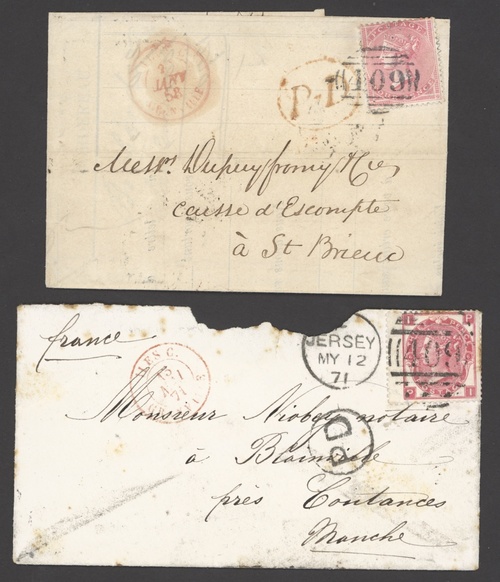 POSTAGE
409
P.P.
JANV
58
Messrs Dupuy fromy & Cie
caisse d'Escompte
à St Brieuc
JERSEY
MY 12
71
409
france
P.D
Monsieur Niobey notaire
à Blainville
près Coutances
Manche